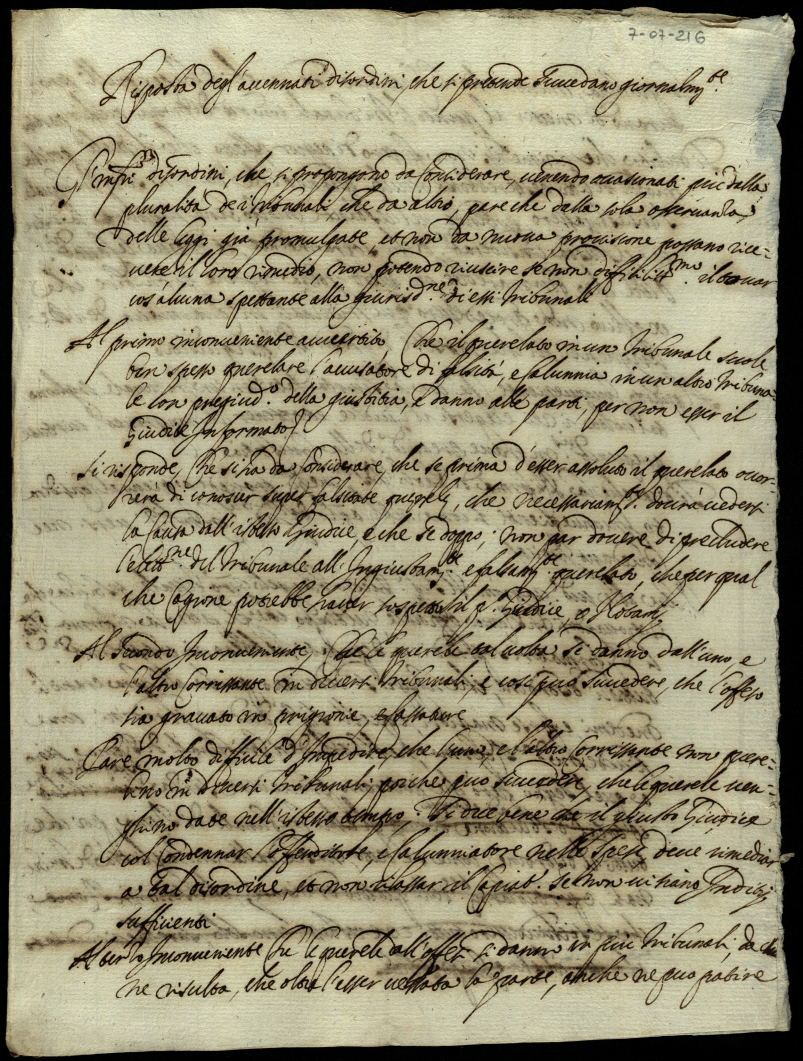 7-07-216
Risposta degl'accennati disordini, che si pretende succedano giornalm.te
Gl'infr.i disordini, che si propongono da Considerare, venendo occasionati più dalla
pluralità de i Tribunali, che da altro, pare che dalla sola osservanza
delle leggi già promulgate, et non da nuova provisione possano rice=
vere il loro rimedio, non potendo riuscire se non difficiliss.mo il trovar
cos'alcuna spettante alla giurisd.ne di essi Tribunali
Al primo inconveniente avvertito Che il querelato in un Tribunale suole
ben spesso querelare l'accusatore di falsità, e Calunnia in un altro Tribuna=
le con pregiud.o della giustitia, e danno alle parti, per non esser il
Giudice Informato
si risponde, Che si ha da Considerare, che se prima d'esser assoluto il querelato occor=
rerà di conoscer super falsitate querelę, che necessariam.te dovrà vedersi
la Causa dall'istesso Giudice, e che se doppo, non par dovere di precludere
l'elett.ne del Tribunale all'Ingiustam.te e falsam.te querelato, che per qual
che Cagione potrebbe haver sospetto il p.o Giudice, o Notaro
Al secondo Inconveniente, Che le querele tal volta si danno dall'uno, e
l'altro Corrissante in diversi Tribunali, e così può succedere, che l'offeso
sia gravato in prigionie, e catture
Pare molto difficile d'Impedire, che l'uno, e l'altro Corrissante non quere=
lino in diversi Tribunali, poiche può succedere, che le querele ven=
ghino date nell'istesso tempo, Si dice bene che il giusto Giudice
col Condennar l'offenditore, e Calunniatore nelle spese deve rimediar
a tal disordine, et non rilassar il Capiat. se non vi siano Inditij
sufficienti
Al terzo Inconveniente Che le querele all'offesi si danno in più Tribunali, da che
ne risulta, che oltre l'esser vessata la parte, anche ne può patire